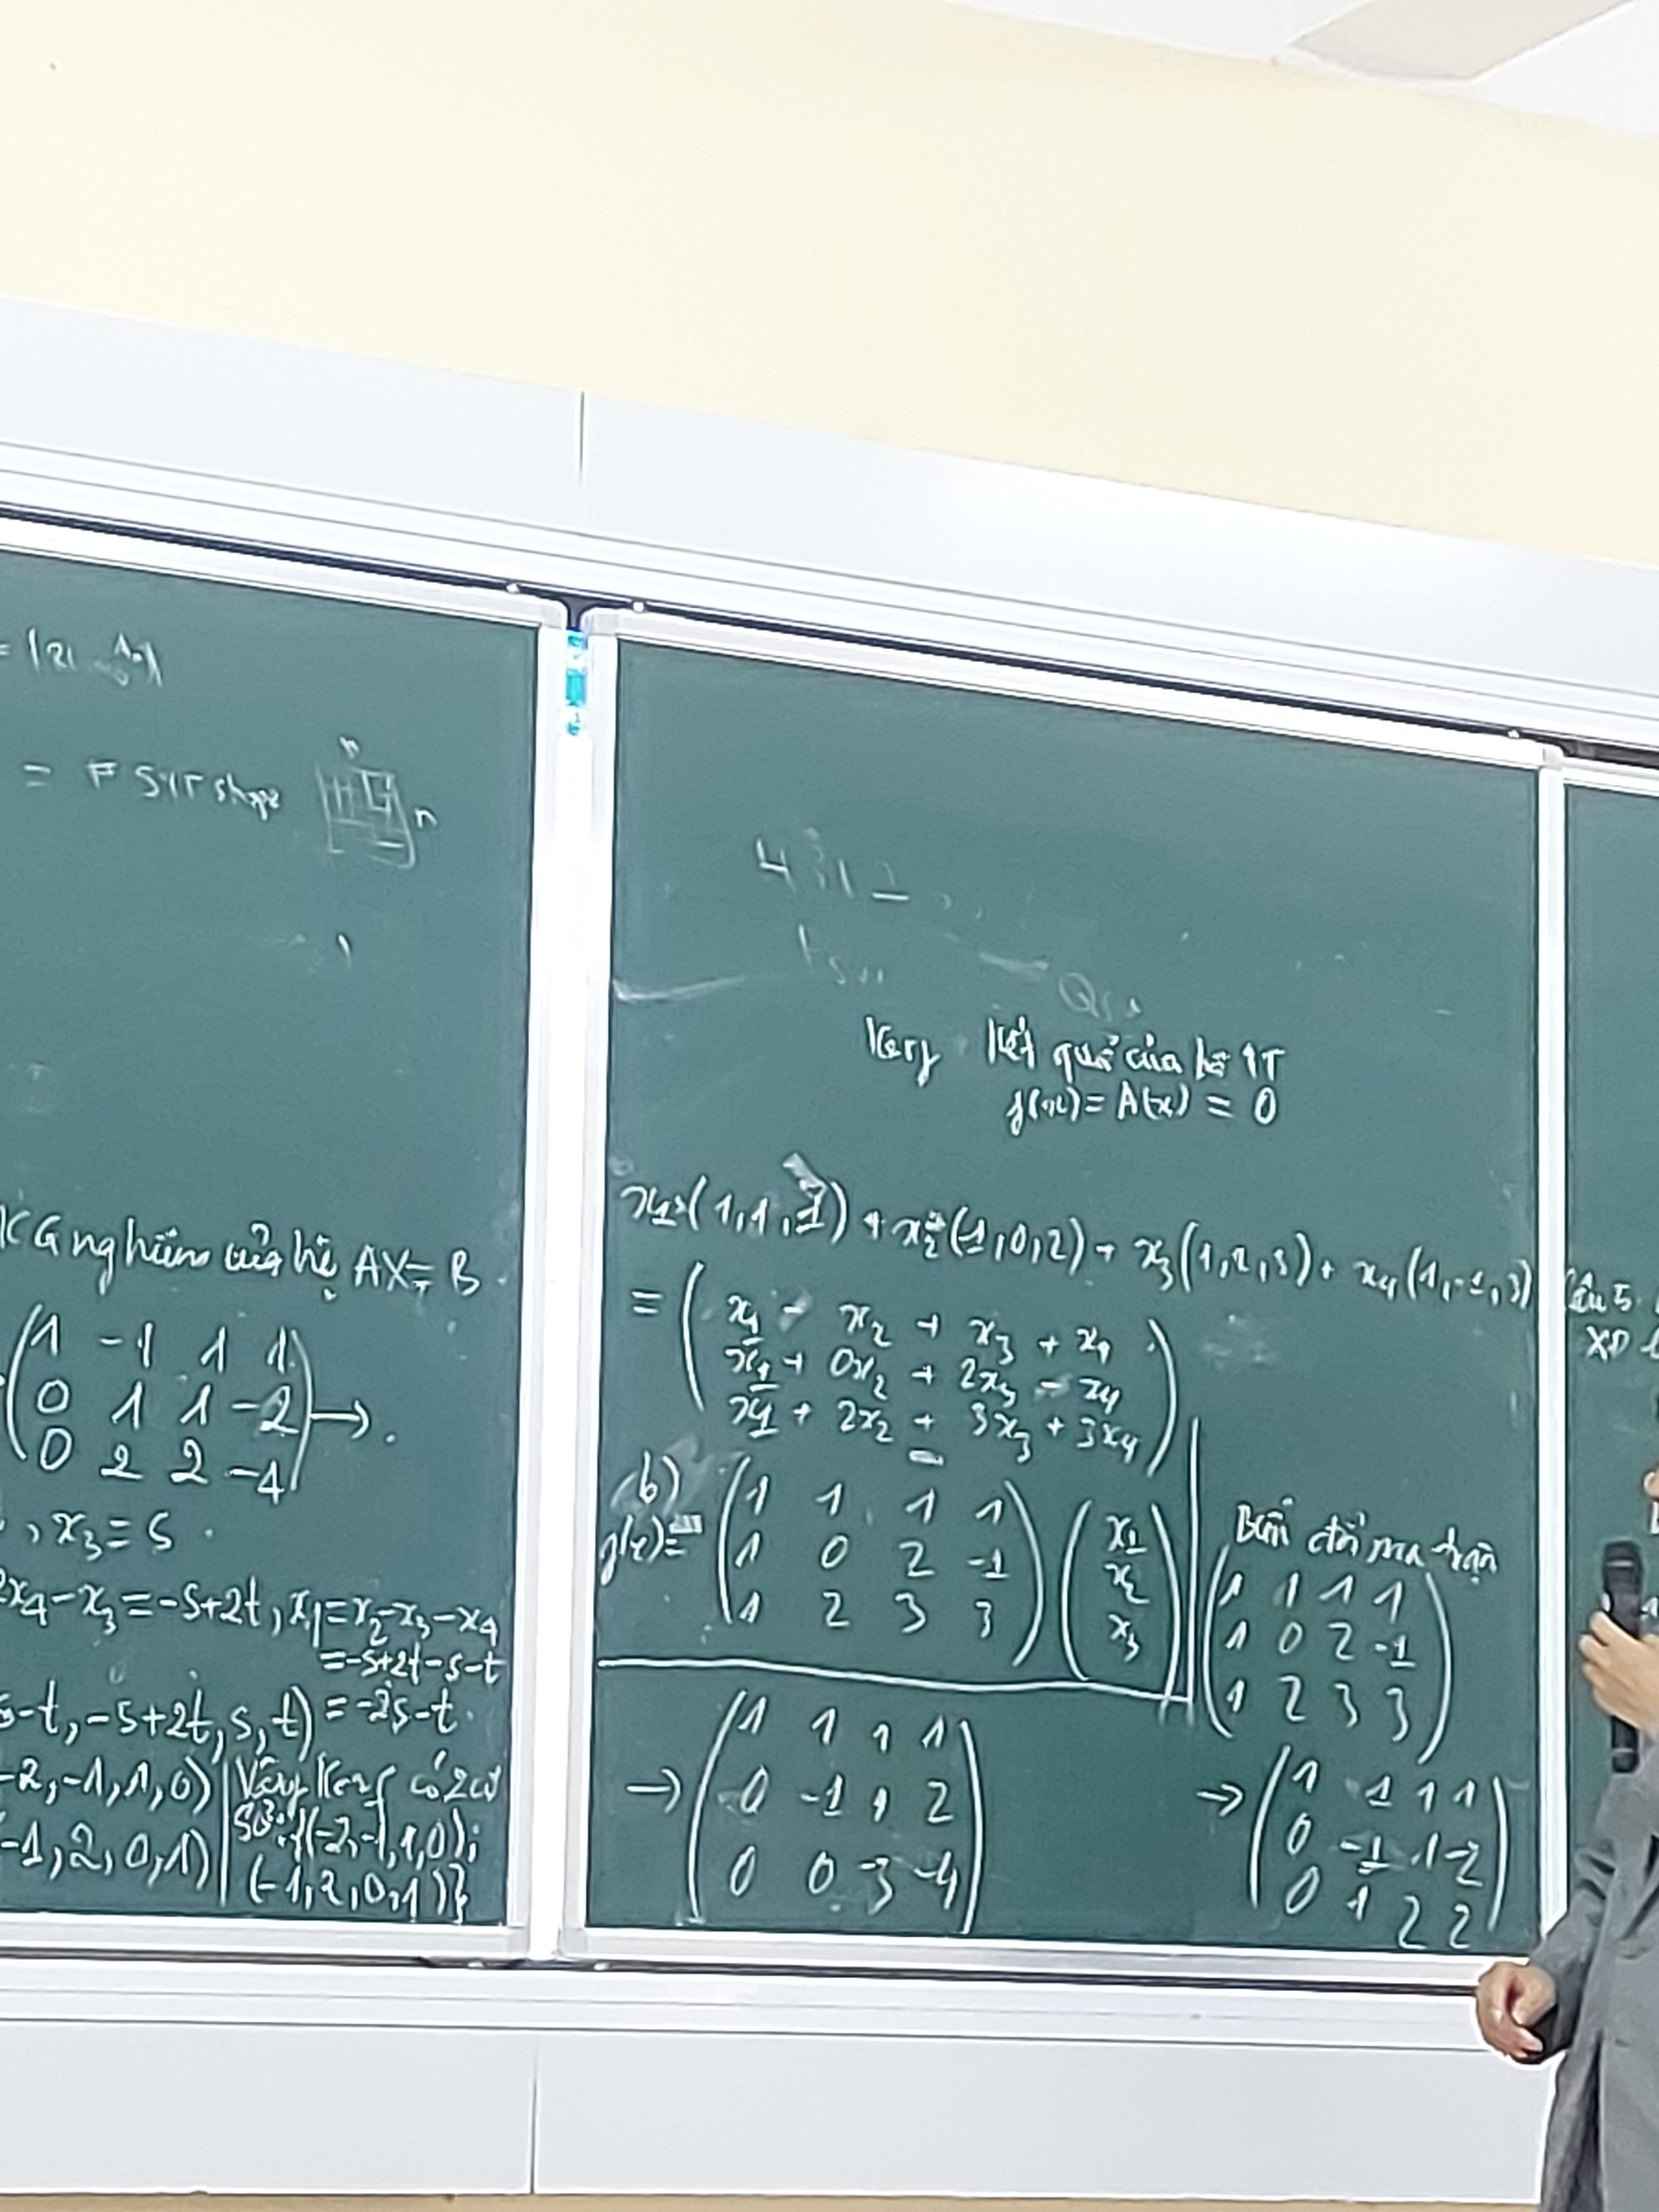 = F SYT shape n
n
KG nghiệm của hệ AX = B
(1 -1 1 1)
(0 1 1 -2) → .
(0 2 2 -4)
, x3 = s .
2x4 - x3 = -s+2t, x1 = x2 - x3 - x4
= -s+2t-s-t
s-t, -s+2t, s, t) = -2s-t.
-2, -1, 1, 0) | Vậy Kerf có 2 cơ
sở: {(-2,-1,1,0);
-1, 2, 0, 1) | (-1,2,0,1)}
4312
Kerf Kết quả của hệ PT
f(x) = A(x) = 0
x1(1,1,1) + x2(-1,0,2) + x3(1,2,3) + x4(1,-1,3)
= (x1 - x2 + x3 + x4
x1 + 0x2 + 2x3 - x4
x1 + 2x2 + 3x3 + 3x4)
b)
f(x) = (1 1 1 1) (x1)
(1 0 2 -1) (x2)
(1 2 3 3) (x3)
Biến đổi ma trận
(1 1 1 1)
(1 0 2 -1)
(1 2 3 3)
→ (1 1 1 1)
(0 -1 1 -2)
(0 1 2 2)
→ (1 1 1 1)
(0 -1 1 2)
(0 0 3 -4)
Câu 5.
XD